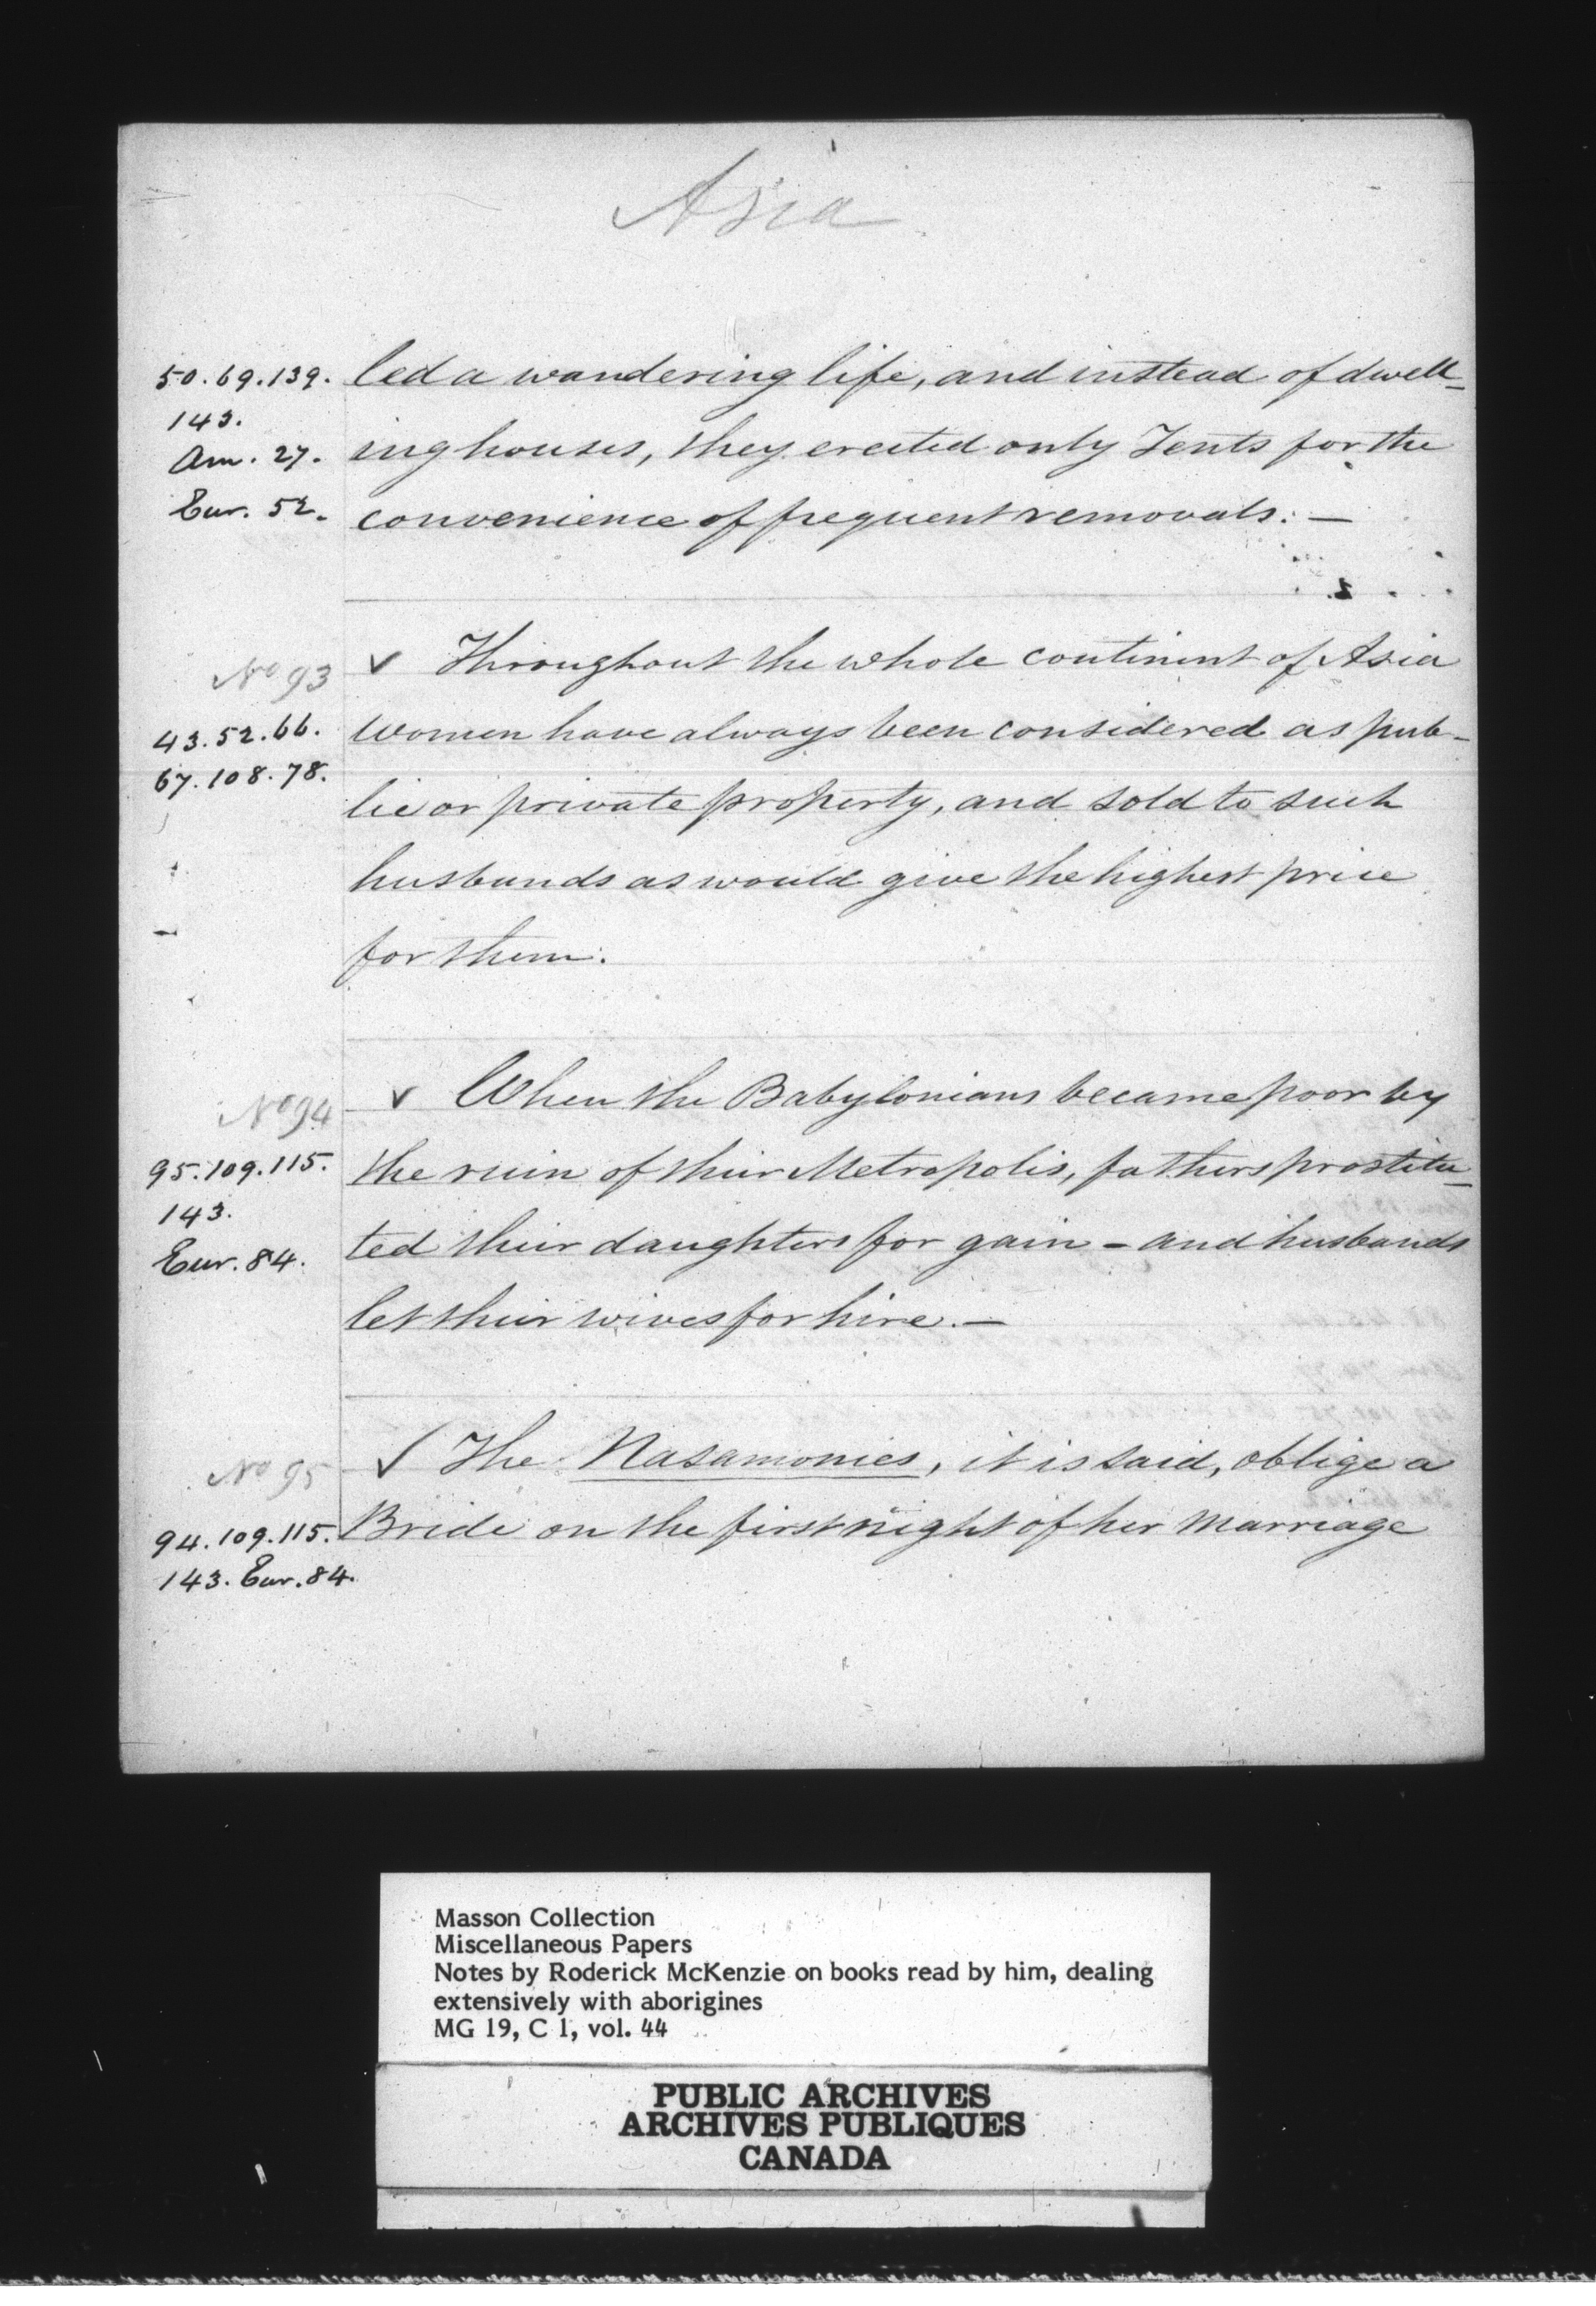 Asia
50.69.139. led a wandering life, and instead of dwell-
143.
Am. 27. ing houses, they erected only Tents for the
Eur. 52. convenience of frequent removals. —
No 93 v Throughout the whole continent of Asia
43.52.66. women have always been considered as pub-
67.108.78. lic or private property, and sold to such
husbands as would give the highest price
for them.
No 94 v When the Babylonians became poor by
95.109.115. the ruin of their Metropolis, fathers prostitu-
143.
Eur. 84. ted their daughters for gain - and husbands
let their wives for hire. —
No 95 √ The Nasamonies, it is said, oblige a
94.109.115. Bride on the first night of her marriage
143. Eur. 84.
Masson Collection
Miscellaneous Papers
Notes by Roderick McKenzie on books read by him, dealing
extensively with aborigines
MG 19, C 1, vol. 44
PUBLIC ARCHIVES
ARCHIVES PUBLIQUES
CANADA